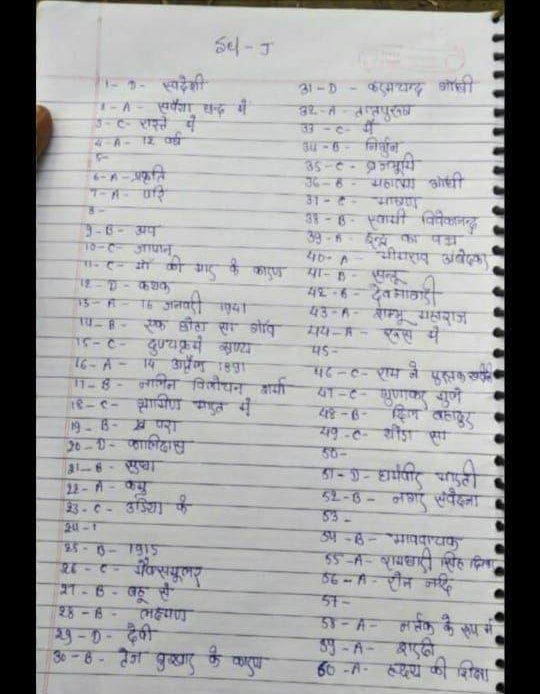 Set - J
1 - D - स्वदेशी
2 - A - सवैया छन्द में
3 - C - रास्ते में
4 - A - 12 वर्ष
5 -
6 - A - प्रकृति
7 - A - परि
8 -
9 - B - अप
10 - C - जापान
11 - C - माँ की याद के कारण
12 - D - कथक
13 - A - 16 जनवरी 1941
14 - B - एक छोटा सा गाँव
15 - C -
16 - A - 14 अप्रैल 1891
17 - B - नलिन विलोचन शर्मा
18 - C - ग्रामिण भारत में
19 - B - परा
20 - D - कालिदास
21 - B - सुधा
22 - A -
23 - C - उड़िया के
24 - 1
25 - B - 1915
26 - C - मैक्समूलर
27 - B - बहू से
28 - B - लक्ष्मण
29 - D - देवी
30 - B - तेज बुखार के कारण
31 - D - करमचन्द गाँधी
32 - A - तत्पुरुष
33 - C - में
34 - B - निर्गुन
35 - C - ब्रजभूमि
36 - B - महात्मा गाँधी
37 - C - भाषण
38 - B - स्वामी विवेकानन्द
39 - A - इन्द्र का पद
40 - A - भीमराव अंबेदकर
41 - D -
42 - B - देवनागरी
43 - A - शम्भू महाराज
44 - A - रूस में
45 -
46 - C - राम ने पुस्तक
47 - C - गुणाकर मुले
48 - B - बहादुर
49 - C - थोड़ा सा
50 -
51 - D - धर्मवीर भारती
52 - B - नगर संवेदना
53 -
54 - B - भाववाचक
55 - A - रामधारी सिंह
56 - A -
57 -
58 - A - नर्तक के रूप में
59 - A -
60 - A - की शिक्षा